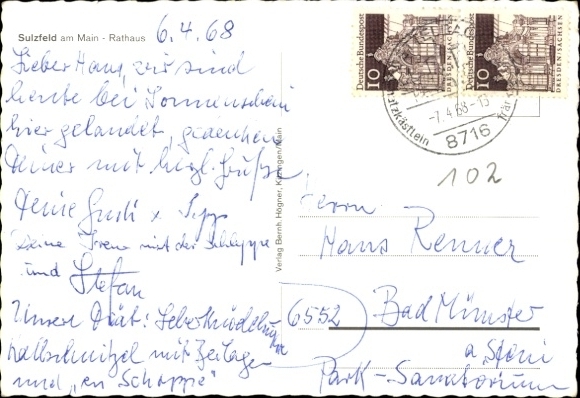 Sulzfeld am Main - Rathaus
6.4.68
Lieber Hans, wir sind
heute bei Sonnenschein
hier gelandet, gedenken
Deiner mit herzl. Grüße
Deine Gusti u. Sepp
Deine Irene mit der Schleppe
und Stefan
Unsere Diät: Leberknödelsuppe
Kalbschnitzel mit Beilagen
und "en Schoppe"
Verlag Bernh. Högner, Kitzingen/Main
Deutsche Bundespost
10
DRESDEN/SACHSEN
Deutsche Bundespost
10
DRESDEN/SACHSEN
-7.4.68-15
8716
102
Herrn
Hans Renner
6552 Bad Münster
a. Stein
Park-Sanatorium